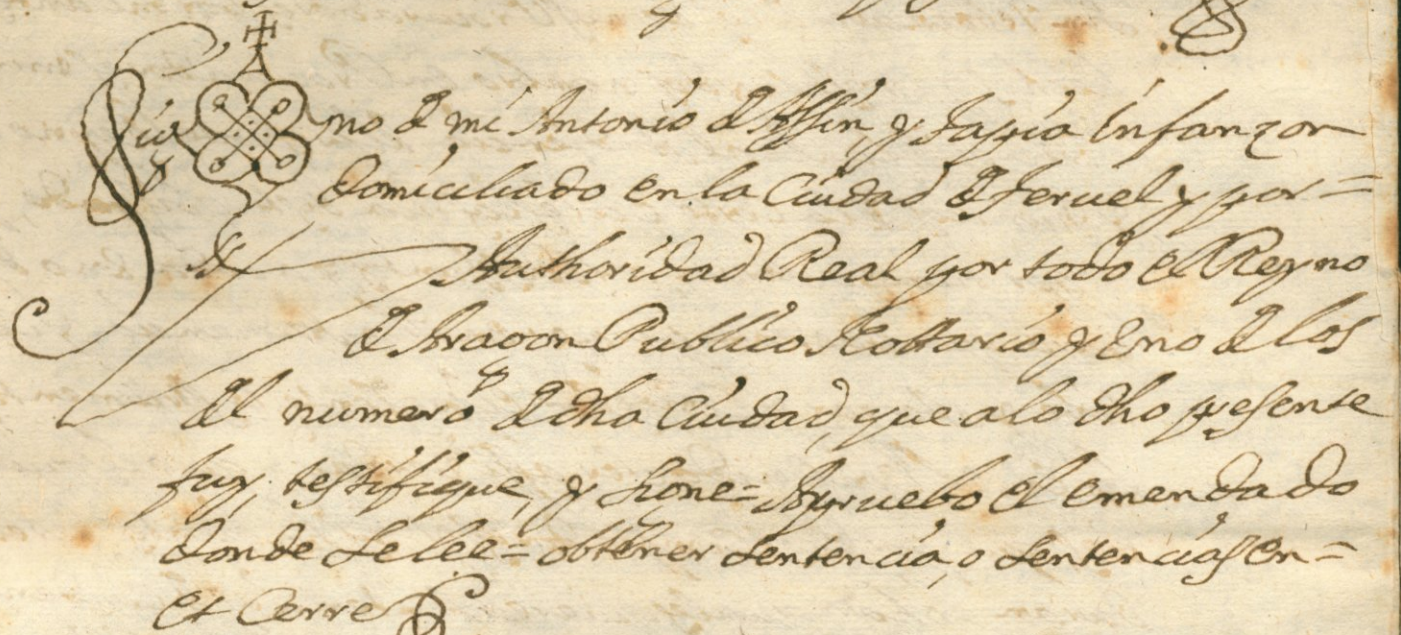 Sig no de mi Antonio de Assin, y Tapia Infanzon
domiciliado en la Ciudad de Teruel y por=
Authoridad Real por todo el Reyno
de Aragon Publico Nottario y Uno de los
del numero de dha Ciudad, que a lo dho presente
fuy, testifique, y signe= Apruebo el emendado
donde se lee= obtener sentencia, o sentencias en=
et Cerre